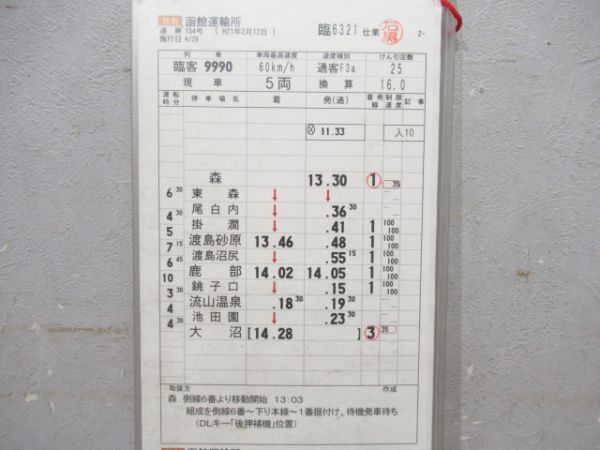 函館運輸所
運 第 154号 ( H21年2月12日 )
施行日 4/29
臨6321 仕業
石黒
2-
列 車 車両最高速度 速度種別 けん引定数
臨客 9990 60km/h 通客F3a 25
現 車 5両 換 算 16.0
運転時分 停 車 場 名 着 発(通) 着発線 制限速度 記 事
⊗ 11.33 入10
森 13.30 1 35
6 30 東 森 ↓ ↓
4 30 尾白内 ↓ .36 30
5 掛 澗 ↓ .41 1 100 100
7 15 渡島砂原 13.46 .48 1 100 100
6 45 渡島沼尻 ↓ .55 15 1 100 100
10 鹿 部 14.02 14.05 1 100 100
3 30 銚子口 ↓ .15 1 100 100
4 流山温泉 .18 30 .19 30
4 30 池田園 ↓ .23 30
大 沼 [14.28 ] 3 35
取扱方 作成
森 側線6番より移動開始 13:03
組成を側線6番~下り本線~1番据付け、待機発車待ち
(DLキー「後押補機」位置)